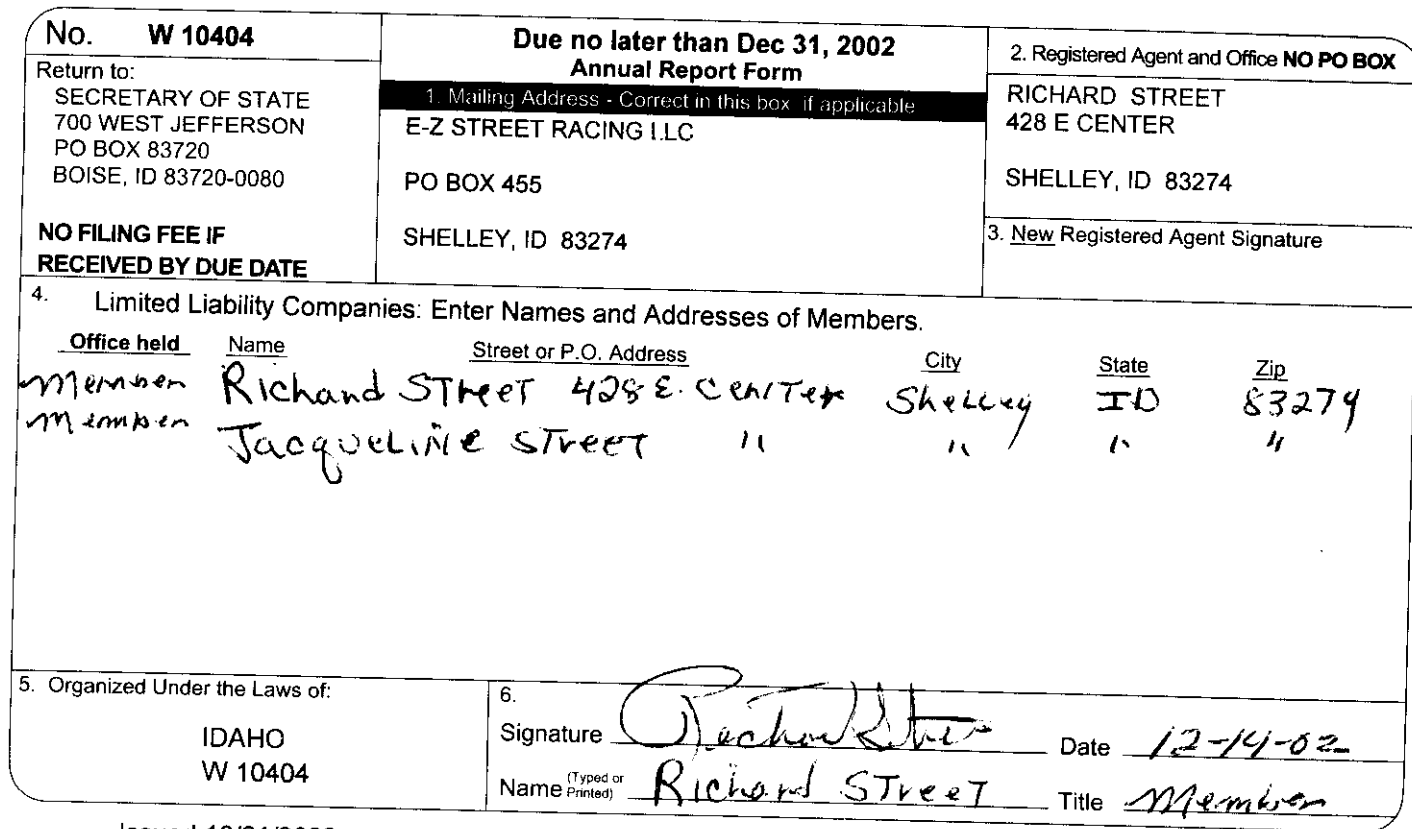 No. W 10404
Return to:
SECRETARY OF STATE
700 WEST JEFFERSON
PO BOX 83720
BOISE, ID 83720-0080
NO FILING FEE IF
RECEIVED BY DUE DATE
Due no later than Dec 31, 2002
Annual Report Form
1. Mailing Address - Correct in this box if applicable
E-Z STREET RACING LLC
PO BOX 455
SHELLEY, ID 83274
2. Registered Agent and Office NO PO BOX
RICHARD STREET
428 E CENTER
SHELLEY, ID 83274
3. New Registered Agent Signature
4. Limited Liability Companies: Enter Names and Addresses of Members.
Office held Name Street or P.O. Address City State Zip
Member Richard Street 428 E. Center Shelley ID 83274
Member Jacqueline Street " " " "
5. Organized Under the Laws of:
IDAHO
W 10404
6.
Signature Richard Street Date 12-14-02
Name (Typed or Printed) Richard Street Title Member